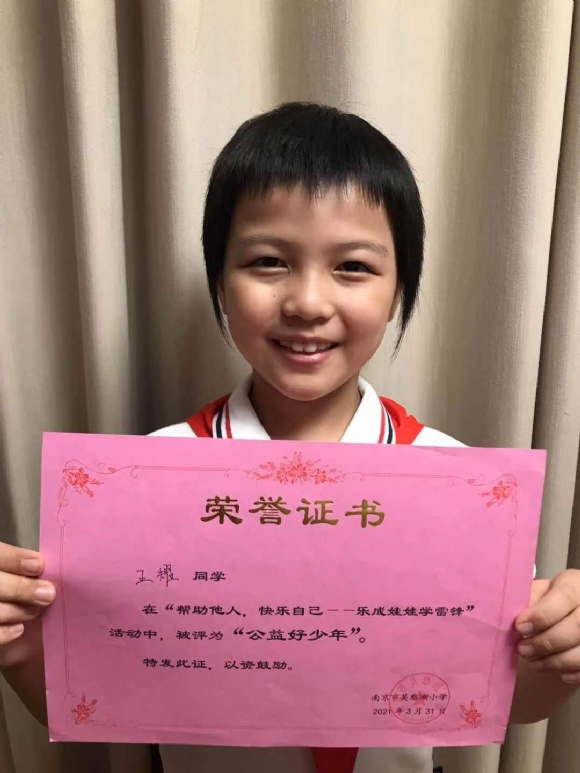 荣誉证书
王耀 同学
在“帮助他人，快乐自己——乐成娃娃学雷锋”
活动中，被评为“公益好少年”。
特发此证，以资鼓励。
2021年3月31日